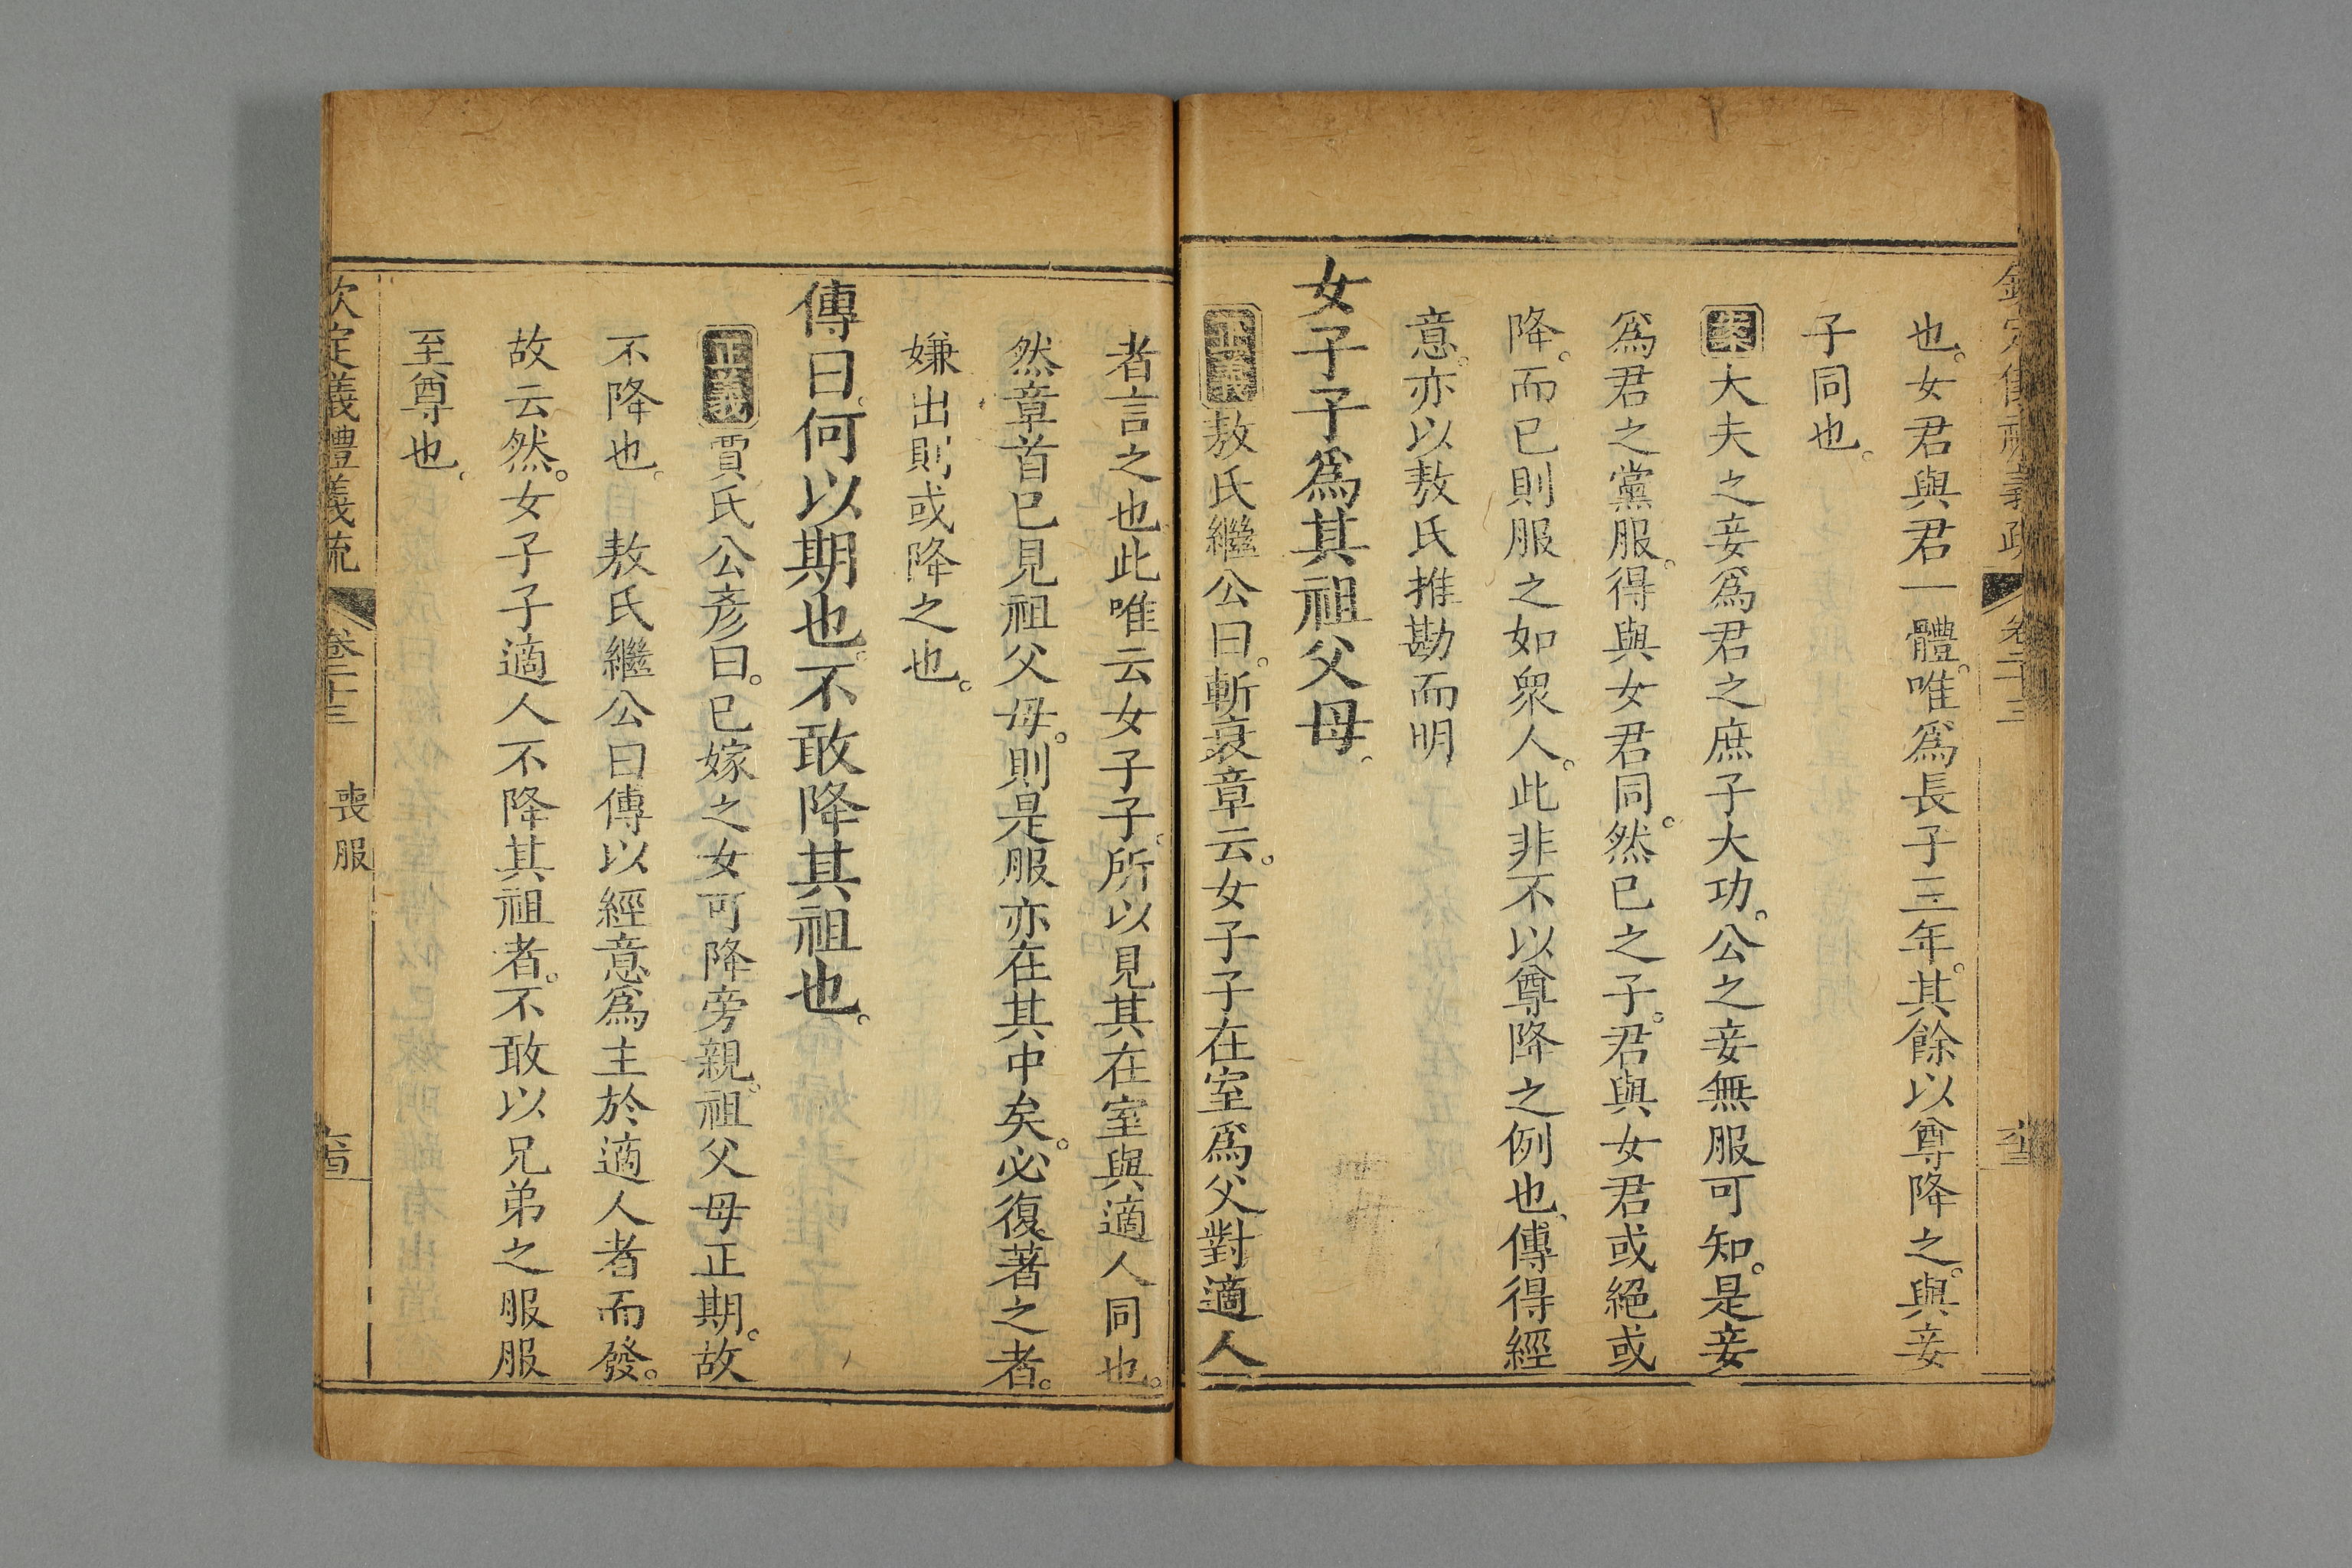 欽定儀禮義疏 卷二十三
也。女君與君一體。唯爲長子三年。其餘以尊降之。與妾
子同也。
案大夫之妾爲君之庶子大功。公之妾無服可知。是妾
爲君之黨服。得與女君同。然已之子。君與女君或絕或
降。而已則服之如衆人。此非不以尊降之例也。傳得經
意。亦以敖氏推勘而明
女子子爲其祖父母。
正義敖氏繼公曰。斬衰章云。女子子在室爲父對適人
者言之也。此唯云女子子。所以見其在室與適人同也。
然章首已見祖父母。則是服亦在其中矣。必復著之者。
嫌出則或降之也。
傳曰。何以期也。不敢降其祖也。
正義賈氏公彥曰。已嫁之女可降旁親。祖父母正期。故
不降也。 敖氏繼公曰傳以經意爲主於適人者而發。
故云然。女子子適人不降其祖者。不敢以兄弟之服服
至尊也。
欽定儀禮義疏 卷二十三 喪服